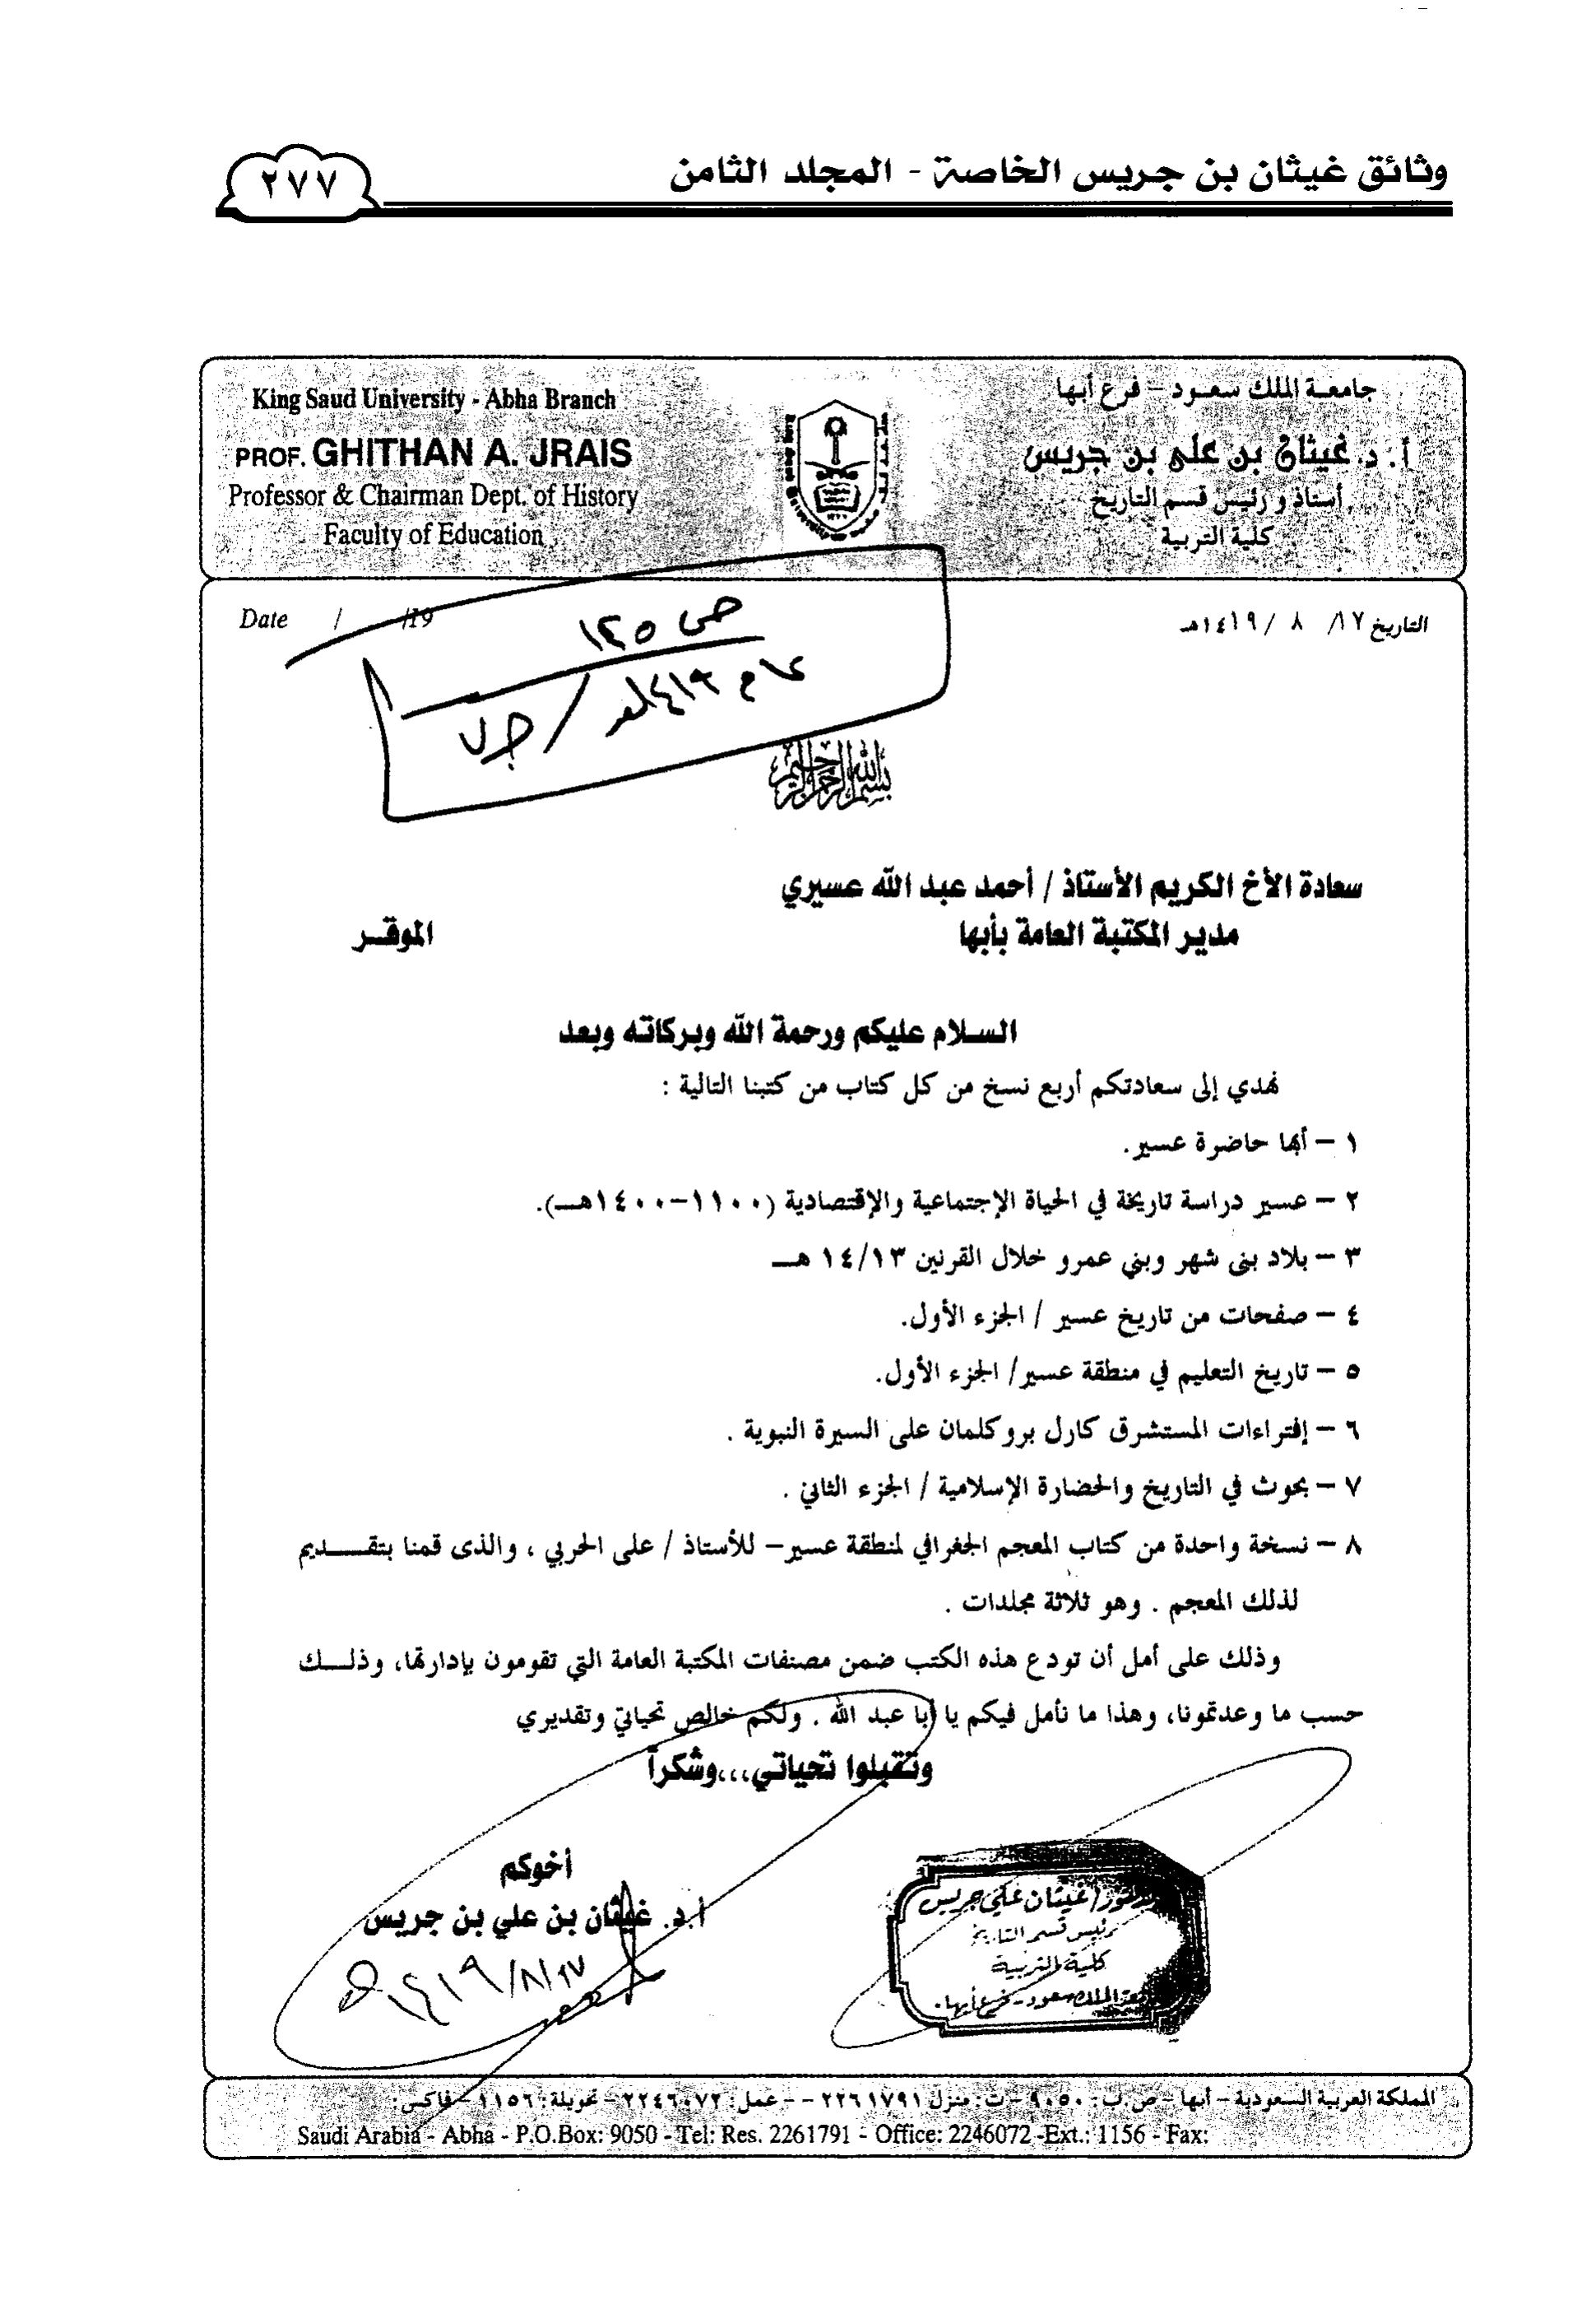 وثائق غيثان بن جريس الخاصة - المجلد الثامن
٢٧٧
King Saud University - Abha Branch
PROF. GHITHAN A. JRAIS
Professor & Chairman Dept. of History
Faculty of Education
جامعة الملك سعود - فرع أبها
أ. د. غيثان بن على بن جريس
أستاذ و رئيس قسم التاريخ
كلية التربية
Date / /19
التاريخ ١٧/ ٨ /١٤١٩هـ
ص ١٢٥
عام ١٤١٩هـ / ج
بسم الله الرحمن الرحيم
سعادة الأخ الكريم الأستاذ / أحمد عبد الله عسيري
مدير المكتبة العامة بأبها الموقـر
السلام عليكم ورحمة الله وبركاته وبعد
نهدي إلى سعادتكم أربع نسخ من كل كتاب من كتبنا التالية :
١ – أبها حاضرة عسير.
٢ – عسير دراسة تاريخة في الحياة الإجتماعية والإقتصادية (١١٠٠–١٤٠٠هـ).
٣ – بلاد بنى شهر وبني عمرو خلال القرنين ١٤/١٣ هـ
٤ – صفحات من تاريخ عسير / الجزء الأول.
٥ – تاريخ التعليم في منطقة عسير/ الجزء الأول.
٦ – إفتراءات المستشرق كارل بروكلمان على السيرة النبوية .
٧ – بحوث في التاريخ والحضارة الإسلامية / الجزء الثاني .
٨ – نسخة واحدة من كتاب المعجم الجغرافي لمنطقة عسير– للأستاذ / على الحربي ، والذى قمنا بتقـديم
لذلك المعجم . وهو ثلاثة مجلدات .
وذلك على أمل أن تودع هذه الكتب ضمن مصنفات المكتبة العامة التي تقومون بإدارتها، وذلـك
حسب ما وعدتمونا، وهذا ما نأمل فيكم يا أبا عبد الله . ولكم خالص تحياتي وتقديري
وتقبلوا تحياتي،،،وشكراً
أخوكم
أ.د. غيثان بن علي بن جريس
١٤١٩/٨/١٧هـ
غيثان علي جريس
رئيس قسم التاريخ
كلية التربية
الملك سعود - فرع أبها
المملكة العربية السعودية - أبها - ص.ب: ٩٠٥٠ - ت: منزل ٢٢٦١٧٩١ - - عمل: ٢٢٤٦٠٧٢ - تحويلة: ١١٥٦ - فاكس:
Saudi Arabia - Abha - P.O.Box: 9050 - Tel: Res. 2261791 - Office: 2246072 -Ext.: 1156 - Fax: